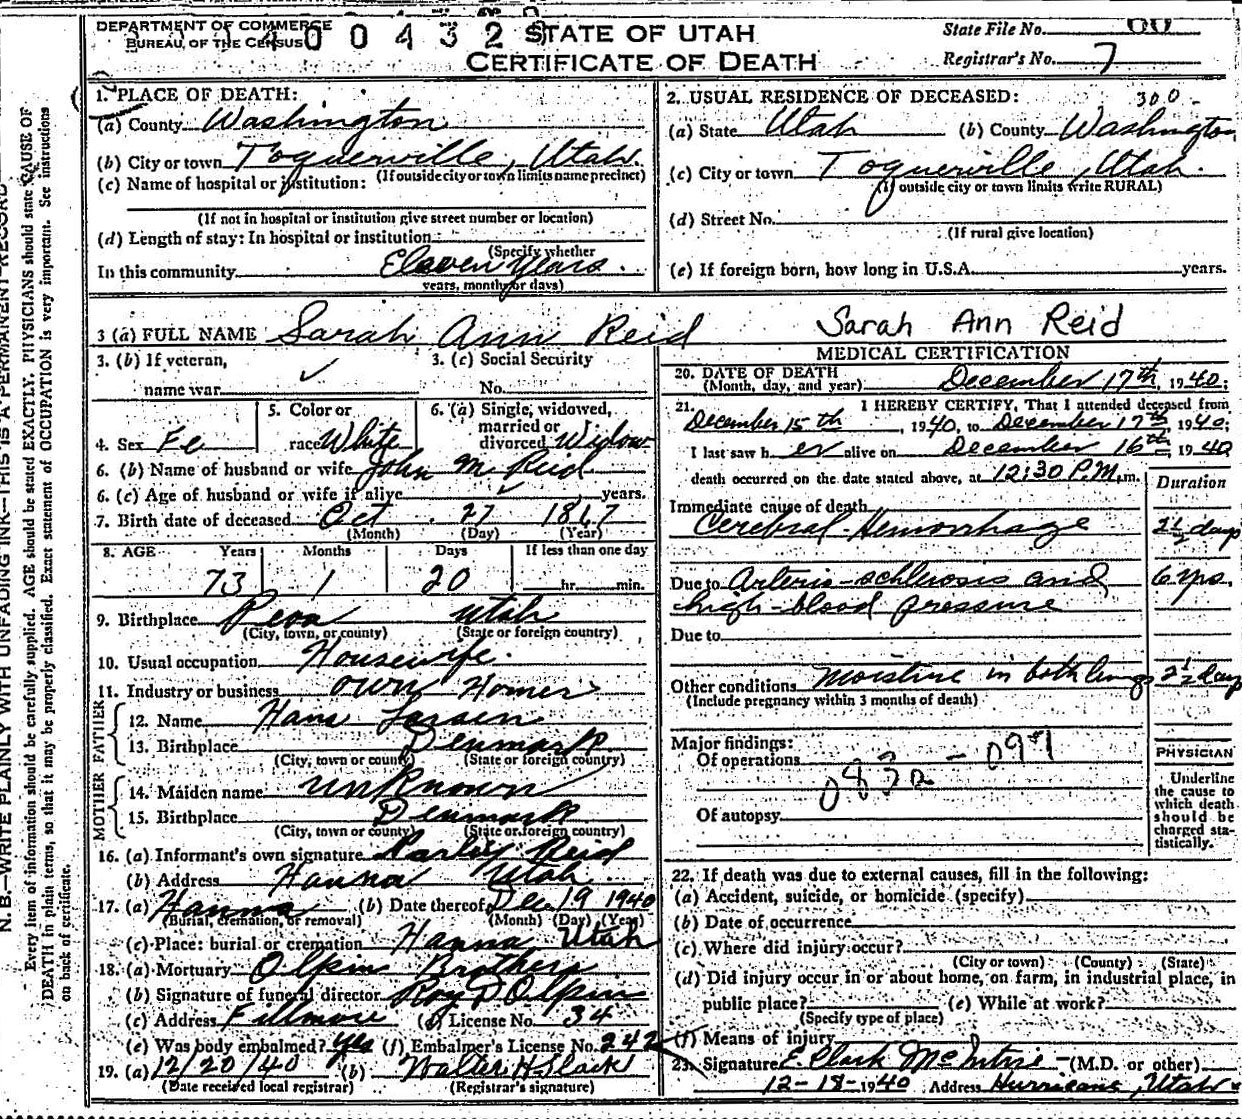 DEPARTMENT OF COMMERCE
BUREAU OF THE CENSUS
400432
STATE OF UTAH
CERTIFICATE OF DEATH
State File No. 60
Registrar's No. 7
1. PLACE OF DEATH:
(a) County Washington
(b) City or town Toquerville, Utah.
(If outside city or town limits name precinct)
(c) Name of hospital or institution:
(If not in hospital or institution give street number or location)
(d) Length of stay: In hospital or institution
(Specify whether
In this community Eleven Years.
years, months or days)
2. USUAL RESIDENCE OF DECEASED: 300-
(a) State Utah (b) County Washington
(c) City or town Toquerville, Utah.
(If outside city or town limits write RURAL)
(d) Street No.
(If rural give location)
(e) If foreign born, how long in U.S.A. years.
3 (a) FULL NAME Sarah Ann Reid
Sarah Ann Reid
3. (b) If veteran,
name war ✓
3. (c) Social Security
No.
4. Sex Fe
5. Color or
race White
6. (a) Single, widowed,
married or
divorced Widow
6. (b) Name of husband or wife John M Reid
6. (c) Age of husband or wife if alive ✓ years.
7. Birth date of deceased Oct 27 1867
(Month) (Day) (Year)
8. AGE Years Months Days If less than one day
73 1 20 hr. min.
9. Birthplace Utah
(City, town, or county) (State or foreign country)
10. Usual occupation Housewife.
11. Industry or business own Home
FATHER
12. Name Hans Larsen
13. Birthplace Denmark
(City, town or county) (State or foreign country)
MOTHER
14. Maiden name unknown
15. Birthplace Denmark
(City, town or county) (State or foreign country)
16. (a) Informant's own signature Parley Reid
(b) Address Hanna Utah
17. (a) Hanna (b) Date thereof Dec 19 1940
(Burial, cremation, or removal) (Month) (Day) (Year)
(c) Place: burial or cremation Hanna, Utah
18. (a) Mortuary Olpin Brothers
(b) Signature of funeral director Roy D Olpin
(c) Address Fillmore (d) License No. 34
(e) Was body embalmed? Yes (f) Embalmer's License No. 242
19. (a) 12/20/40 (b) Walter H Slack
(Date received local registrar) (Registrar's signature)
MEDICAL CERTIFICATION
20. DATE OF DEATH
(Month, day, and year) December 17th, 1940;
21. I HEREBY CERTIFY, That I attended deceased from
December 15th, 1940, to December 17th, 1940;
I last saw her alive on December 16th, 1940
death occurred on the date stated above, at 12:30 P.M. m.
Duration
Immediate cause of death
Cerebral-Hemorrhage 2½ days
Due to Arterio-schlerosis and 6 yrs.
high-blood pressure
Due to
Other conditions Moisture in both lungs 2½ days
(Include pregnancy within 3 months of death)
Major findings:
Of operations
083a - 091
Of autopsy
PHYSICIAN
Underline
the cause to
which death
should be
charged sta-
tistically.
22. If death was due to external causes, fill in the following:
(a) Accident, suicide, or homicide (specify)
(b) Date of occurrence
(c) Where did injury occur?
(City or town) (County) (State)
(d) Did injury occur in or about home, on farm, in industrial place, in
public place? (e) While at work?
(Specify type of place)
(f) Means of injury
23. Signature E Clark McIntire (M.D. or other)
12-18-1940 Address Hurricane, Utah
N.B.—WRITE PLAINLY WITH UNFADING INK—THIS IS A PERMANENT RECORD
Every item of information should be carefully supplied. AGE should be stated EXACTLY. PHYSICIANS should state CAUSE OF
DEATH in plain terms, so that it may be properly classified. Exact statement of OCCUPATION is very important. See instructions
on back of certificate.